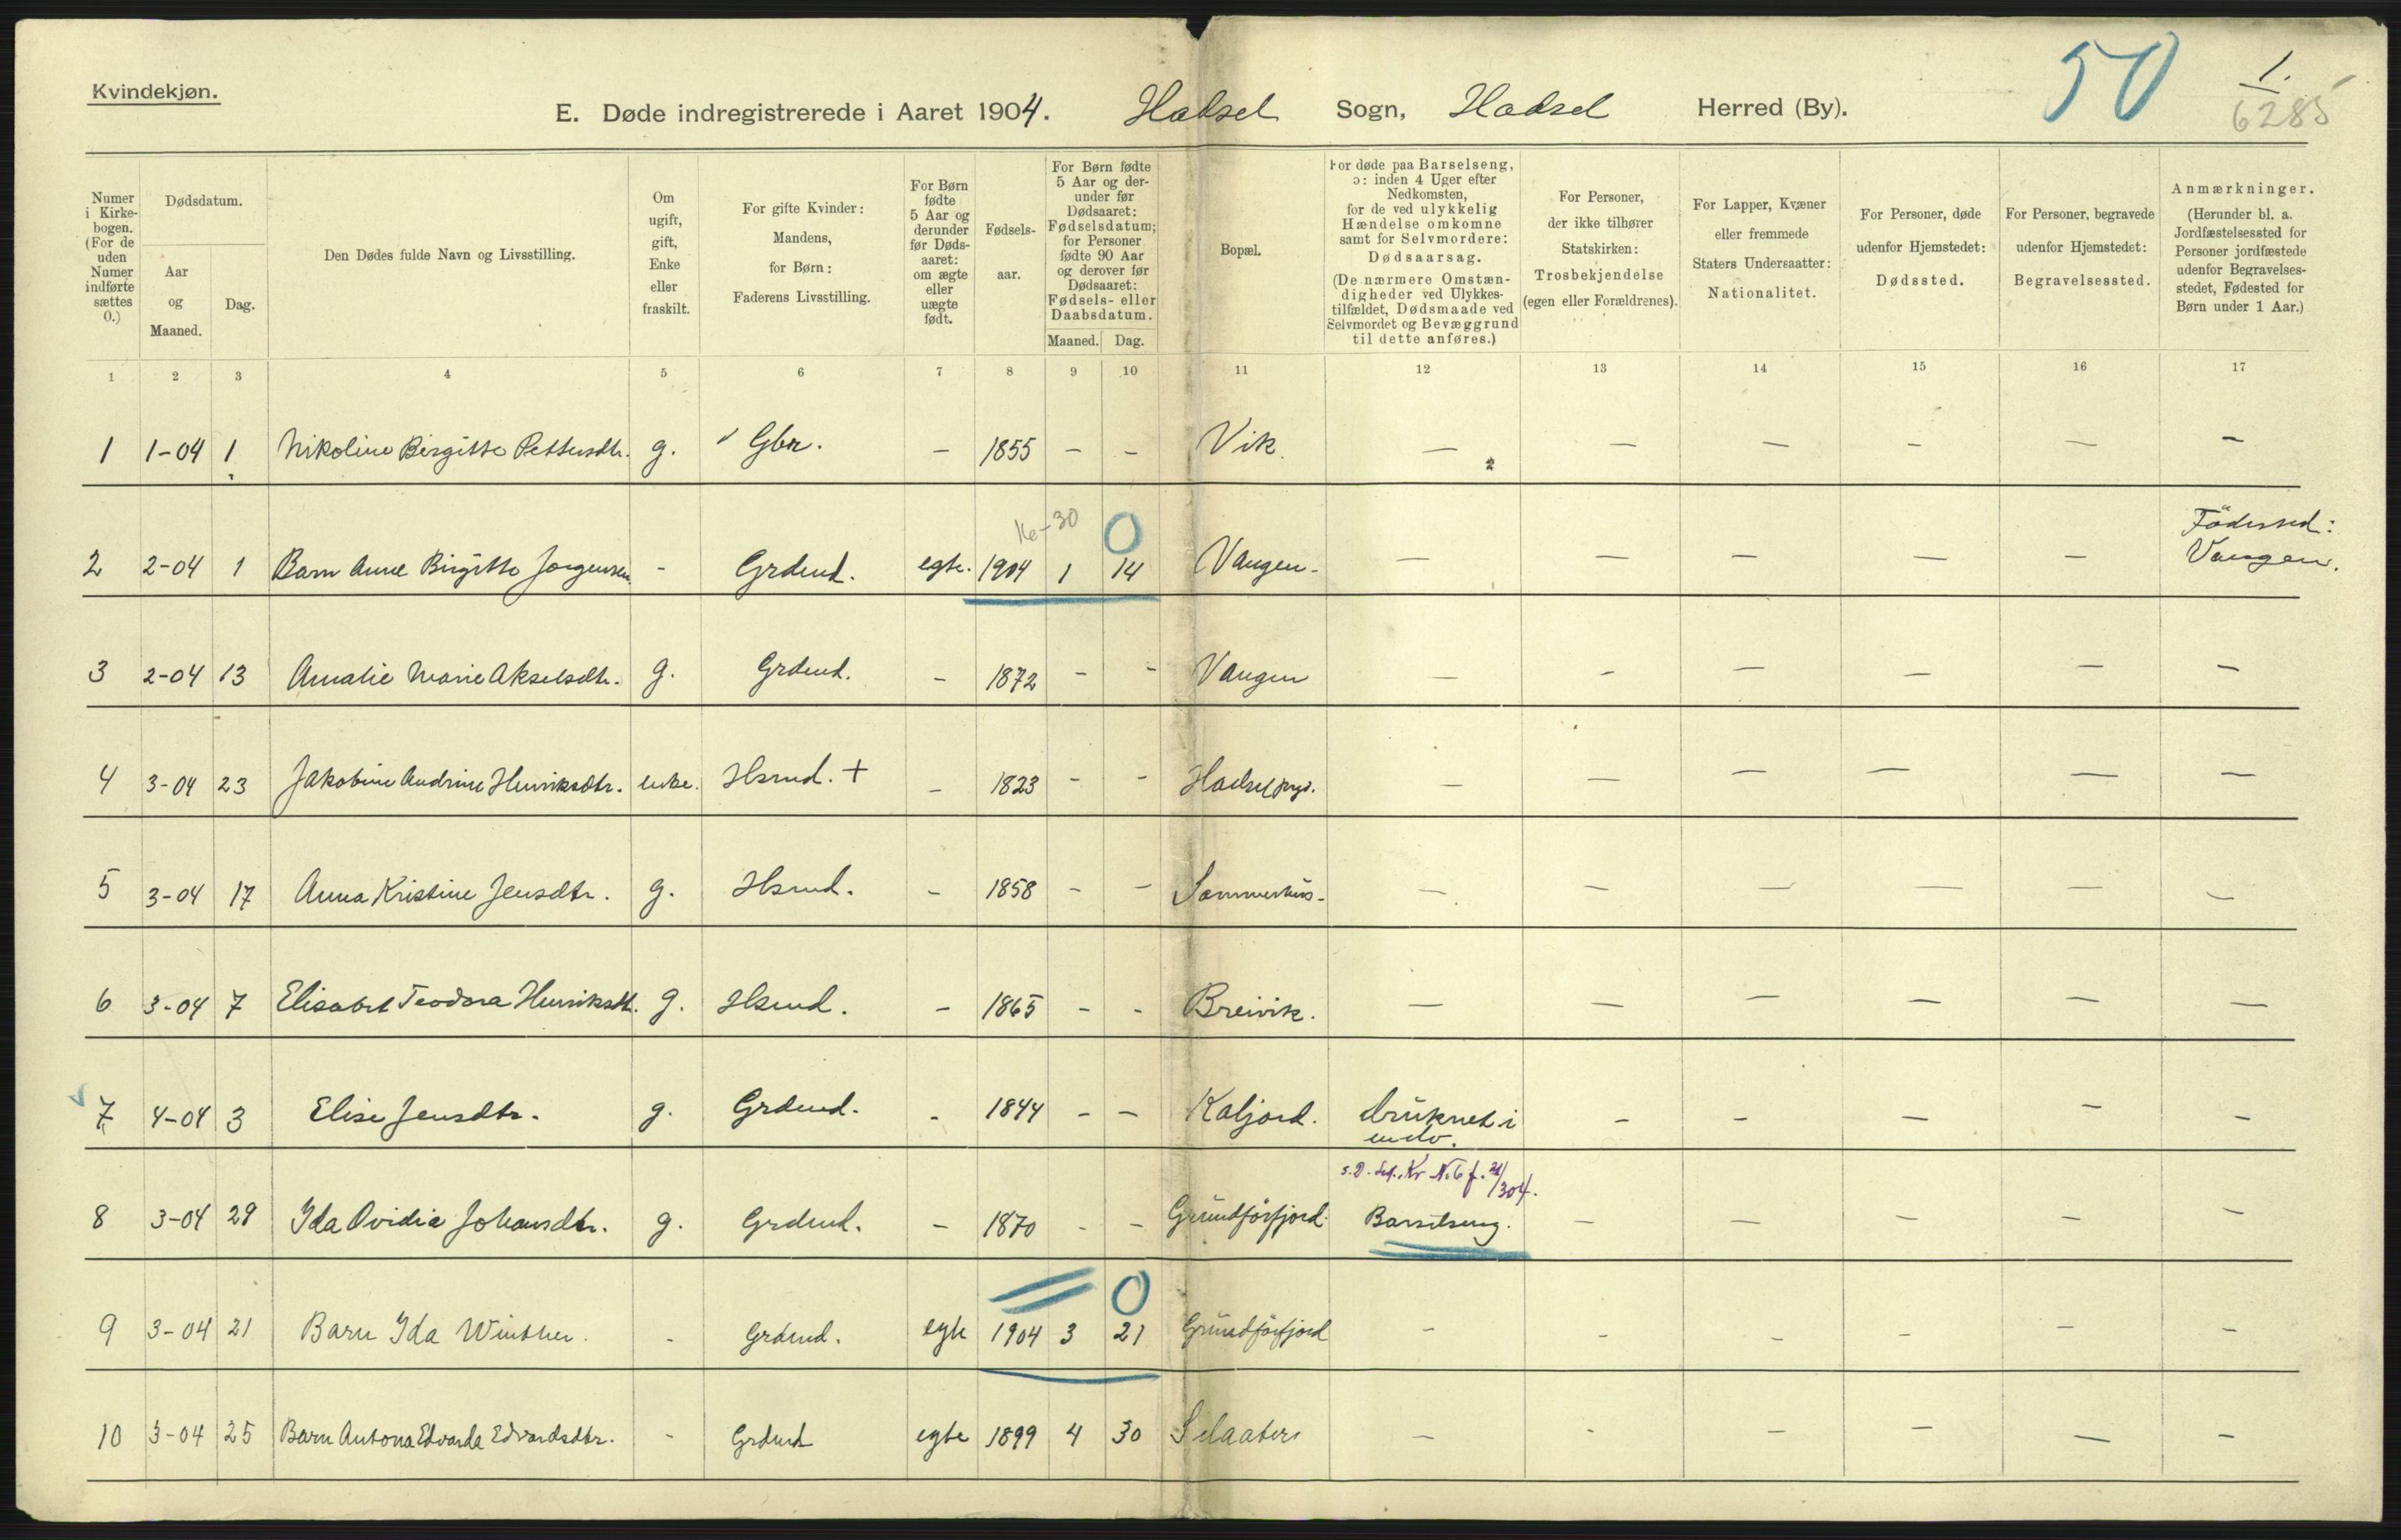 Kvindekjøn.
E. Døde indregistrerede i Aaret 1904. Hadsel Sogn, Hadsel Herred (By).
50
1.
6285
Numer i Kirkebogen. (For de uden Numer indførte sættes 0.)
Dødsdatum.
Aar og Maaned.
Dag.
Den Dødes fulde Navn og Livsstilling.
Om ugift, gift, Enke eller fraskilt.
For gifte Kvinder: Mandens, for Børn: Faderens Livsstilling.
For Børn fødte 5 Aar og derunder før Dødsaaret: om ægte eller uægte født.
Fødselsaar.
For Børn fødte 5 Aar og derunder før Dødsaaret: Fødselsdatum; for Personer fødte 90 Aar og derover før Dødsaaret: Fødsels- eller Daabsdatum.
Maaned. Dag.
Bopæl.
For døde paa Barselseng, ɔ: inden 4 Uger efter Nedkomsten, for de ved ulykkelig Hændelse omkomne samt for Selvmordere: Dødsaarsag.
(De nærmere Omstændigheder ved Ulykkestilfældet, Dødsmaade ved Selvmordet og Bevæggrund til dette anføres.)
For Personer, der ikke tilhører Statskirken: Trosbekjendelse (egen eller Forældrenes).
For Lapper, Kvæner eller fremmede Staters Undersaatter: Nationalitet.
For Personer, døde udenfor Hjemstedet: Dødssted.
For Personer, begravede udenfor Hjemstedet: Begravelsessted.
Anmærkninger.
(Herunder bl. a. Jordfæstelsessted for Personer jordfæstede udenfor Begravelsesstedet, Fødested for Børn under 1 Aar.)
1 2 3 4 5 6 7 8 9 10 11 12 13 14 15 16 17
1 1-04 1 Nikoline Birgitte Pettersdtr. g. Gbr. - 1855 - - Vik. - - - - - -
16-30 0
2 2-04 1 Barn Anne Birgitte Jørgensen - Grdmd. egte. 1904 1 14 Vangen - - - - - Födested: Vangen.
3 2-04 13 Amalie Marie Akselsdtr. g. Grdmd. - 1872 - - Vangen - - - - - -
4 3-04 23 Jakobine Andrine Henriksdtr. enke. Hsmd. + - 1823 - - Hadsel prgd. - - - - - -
5 3-04 17 Anna Kristine Jensdtr. g. Hsmd. - 1858 - - Sommerhus - - - - - -
6 3-04 7 Elisabet Teodora Henriksdtr. g. Hsmd. - 1865 - - Breivik. - - - - - -
7 4-04 3 Elise Jensdtr. g. Grdmd. - 1844 - - Kaljord. druknet i en elv. - - - - -
8 3-04 29 Ida Ovidia Johansdtr. g. Grdmd. - 1870 - - Grundförfjord. Barselseng. - - - - -
0
9 3-04 21 Barn Ida Winther. - Grdmd. egte 1904 3 21 Grundförfjord - - - - - -
10 3-04 25 Barn Antona Edvarda Edvardsdtr. - Grdmd egte 1899 4 30 - - - - - -